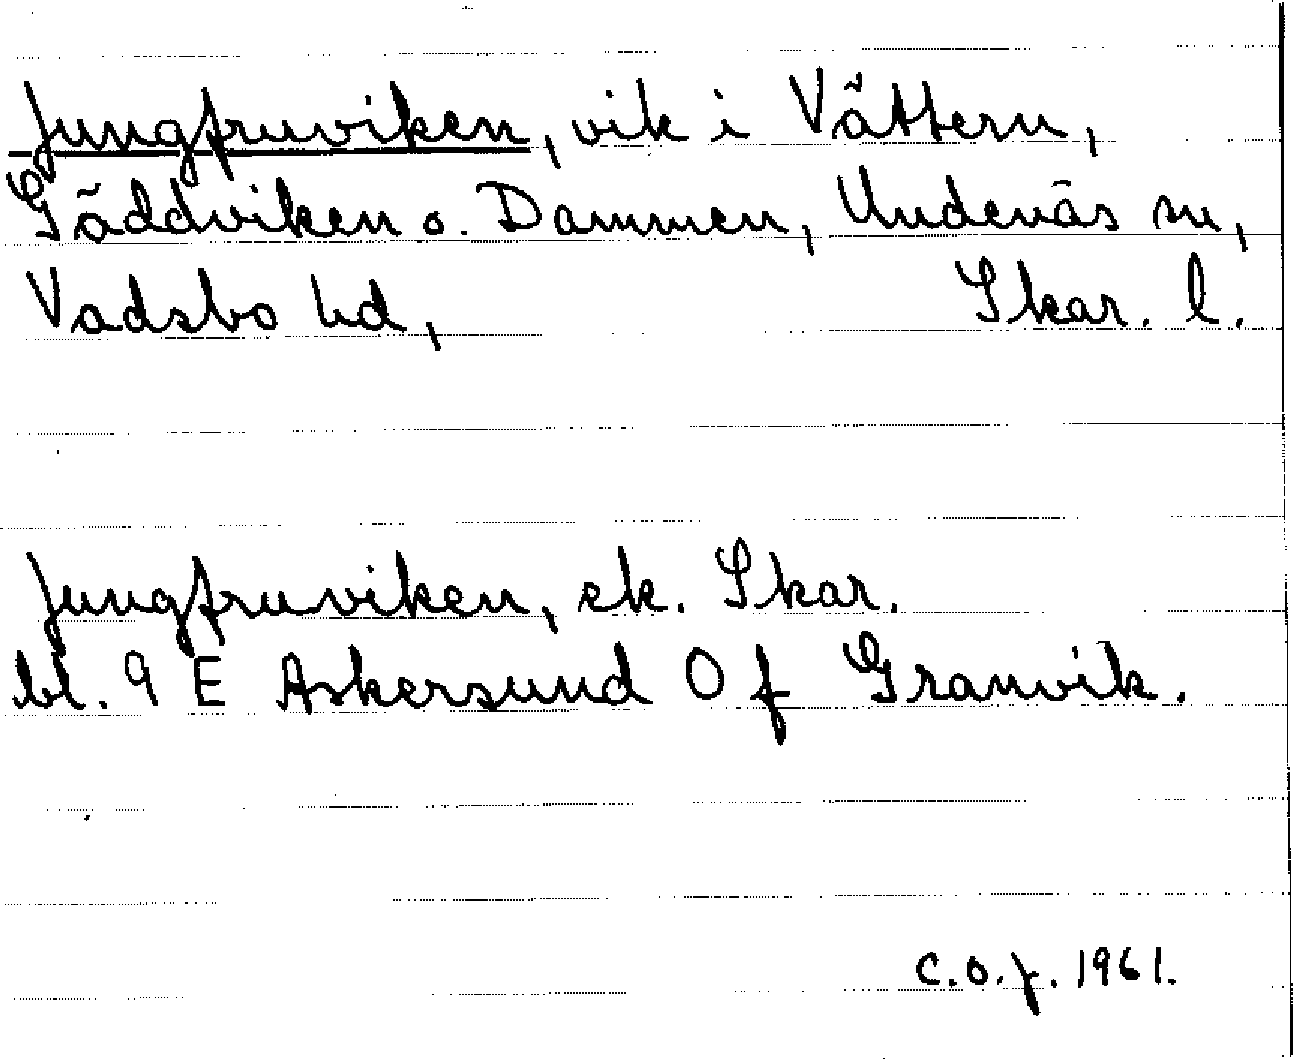 Jungfruviken, vik i Vättern,
Gäddviken o. Dammen, Undenäs sn,
Vadsbo hd, Skar. l.
Jungfruviken, ek. Skar.
bl. 9 E Askersund 0 f Granvik.
C.O.J. 1961.